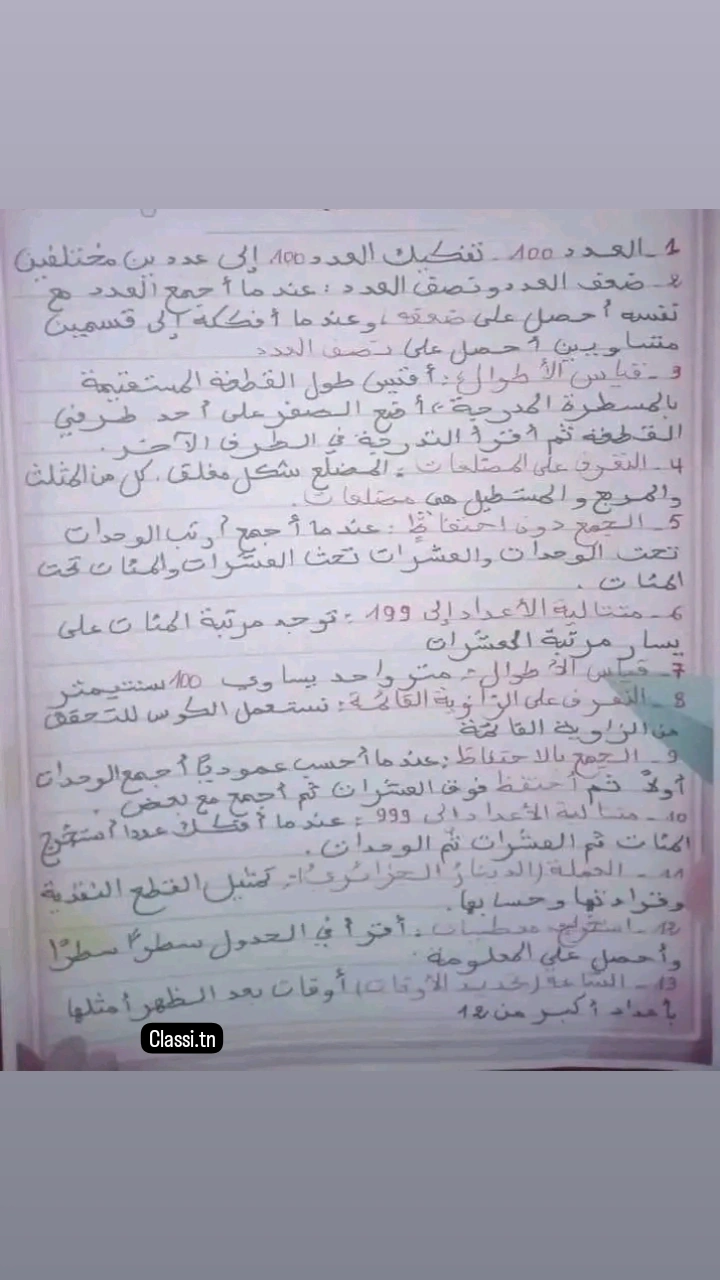 1 - العدد 100 - تفكيك العدد 100 إلى عددين مختلفين
2 - ضعف العدد ونصف العدد : عندما أجمع العدد مع
نفسه أحصل على ضعفه ، وعندما أفككه إلى قسمين
متساويين أحصل على نصف العدد
3 - قياس الأطوال : أقيس طول القطعة المستقيمة
بالمسطرة المدرجة ، أضع الصفر على أحد طرفي
القطعة ثم أقرأ التدرجة في الطرف الآخر .
4 - التعرف على المضلعات : المضلع شكل مغلق . كل من المثلث
والمربع والمستطيل هي مضلعات .
5 - الجمع دون احتفاظ : عندما أجمع أرتب الوحدات
تحت الوحدات والعشرات تحت العشرات والمئات تحت
المئات .
6 - متتالية الأعداد إلى 199 : توجد مرتبة المئات على
يسار مرتبة العشرات
7 - قياس الأطوال : متر واحد يساوي 100 سنتيمتر
8 - التعرف على الزاوية القائمة : نستعمل الكوس للتحقق
من الزاوية القائمة
9 - الجمع بالاحتفاظ : عندما أحسب عموديًا أجمع الوحدات
أولاً ثم أحتفظ فوق العشرات ثم أجمع مع بعض .
10 - متتالية الأعداد إلى 999 : عندما أفكك عددا أستخرج
المئات ثم العشرات ثم الوحدات .
11 - العملة (الدينار الجزائري) : تمثيل القطع النقدية
وقراءتها وحسابها .
12 - استخراج معطيات : أقرأ في الجدول سطرًا سطرًا
وأحصل على المعلومة .
13 - الساعة (تحديد الأوقات) أوقات بعد الظهر أمثلها
بأعداد أكبر من 12
Classi.tn